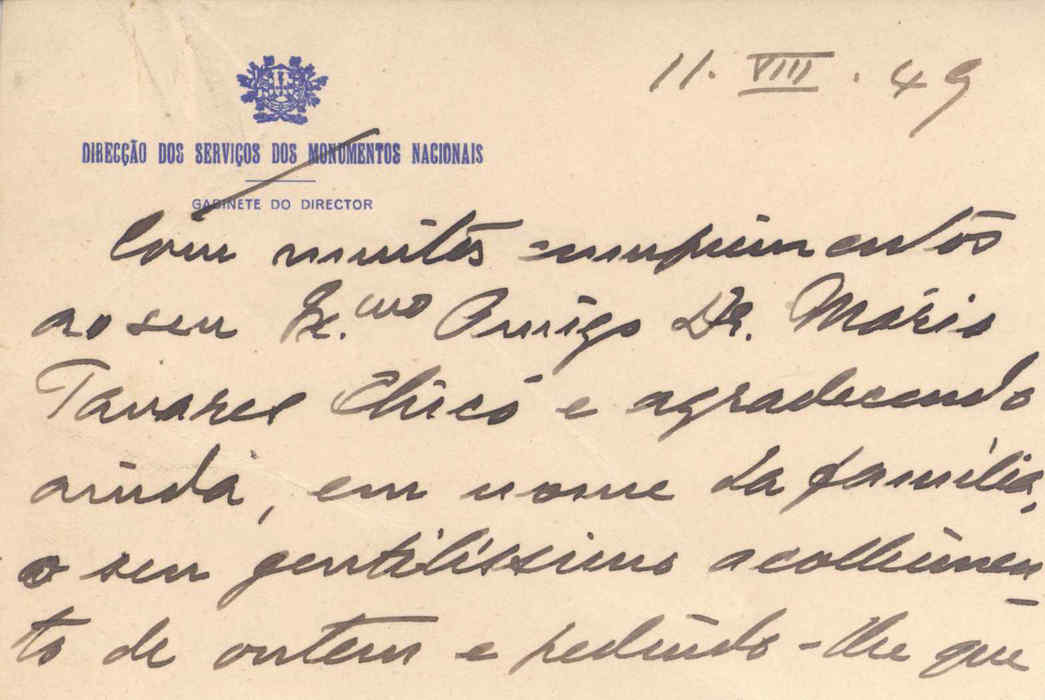 11. VIII. 49
DIRECÇÃO DOS SERVIÇOS DOS MONUMENTOS NACIONAIS
GABINETE DO DIRECTOR
Com muitos cumprimentos
ao seu Ex.mo Amigo Dr. Mário
Tavares Chicó e agradecendo
ainda, em nome da família,
o seu gentilíssimo acolhimen
to de ontem e pedindo-lhe que